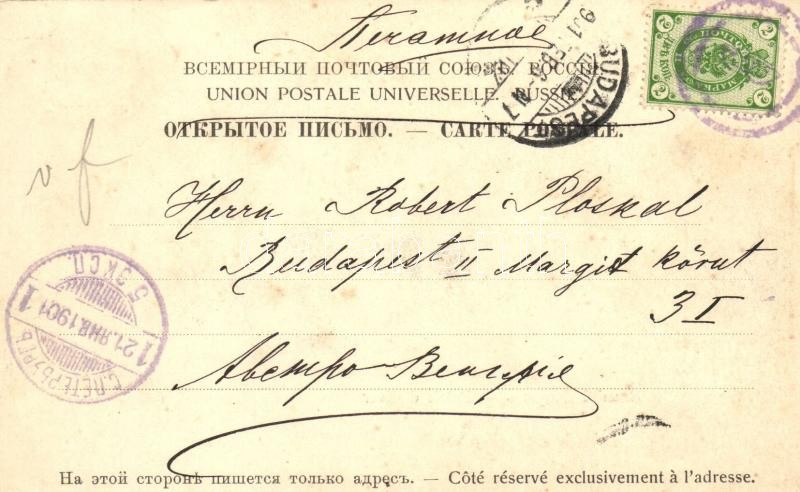 Печатное
ВСЕМІРНЫЙ ПОЧТОВЫЙ СОЮЗЪ. РОССІЯ
UNION POSTALE UNIVERSELLE. RUSSIE
ОТКРЫТОЕ ПИСЬМО. — CARTE POSTALE.
BUDAPEST
2 2 2 2
vf
Herrn Robert Ploskal
Budapest II Margit körut
3 I
Австро Венгрія
5 ЭКСП.
1 21.ЯНВ.1901 1
С.ПЕТЕРБУРГЪ
На этой сторонѣ пишется только адресъ. — Côté réservé exclusivement à l'adresse.